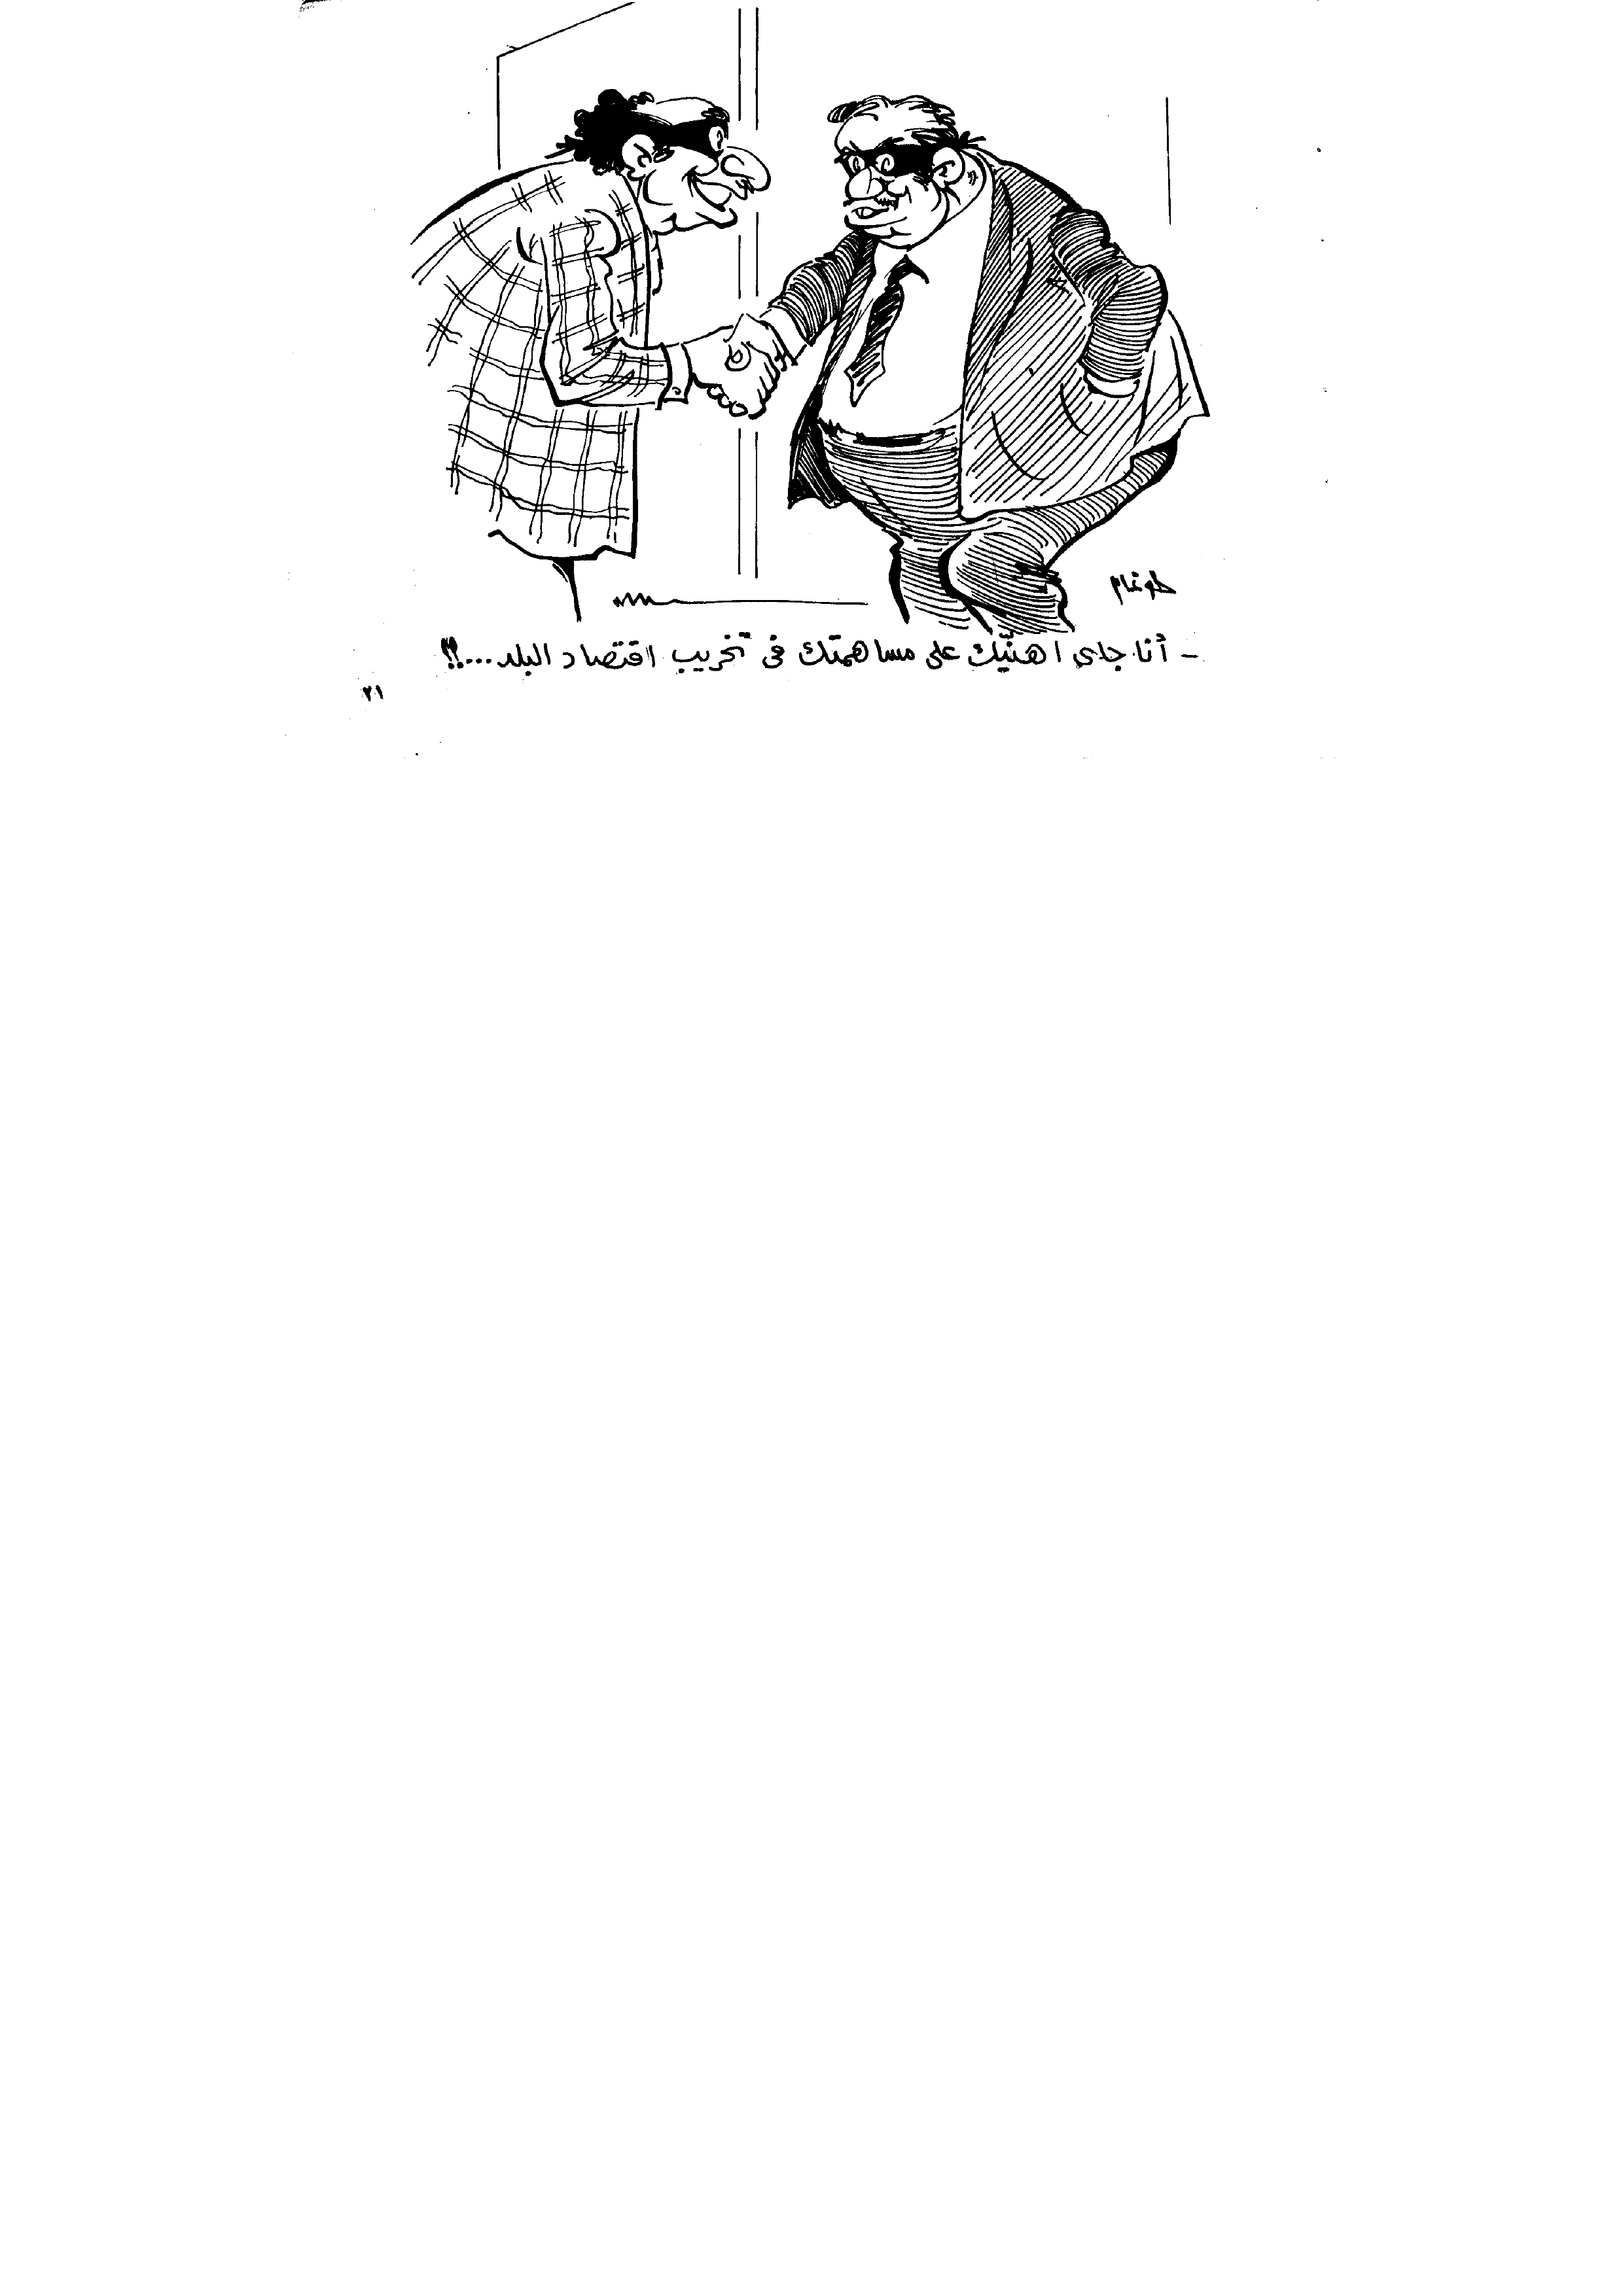 طوغان
- أنا جاى اهنّيك على مساهمتك فى تخريب اقتصاد البلد...؟!
٢١